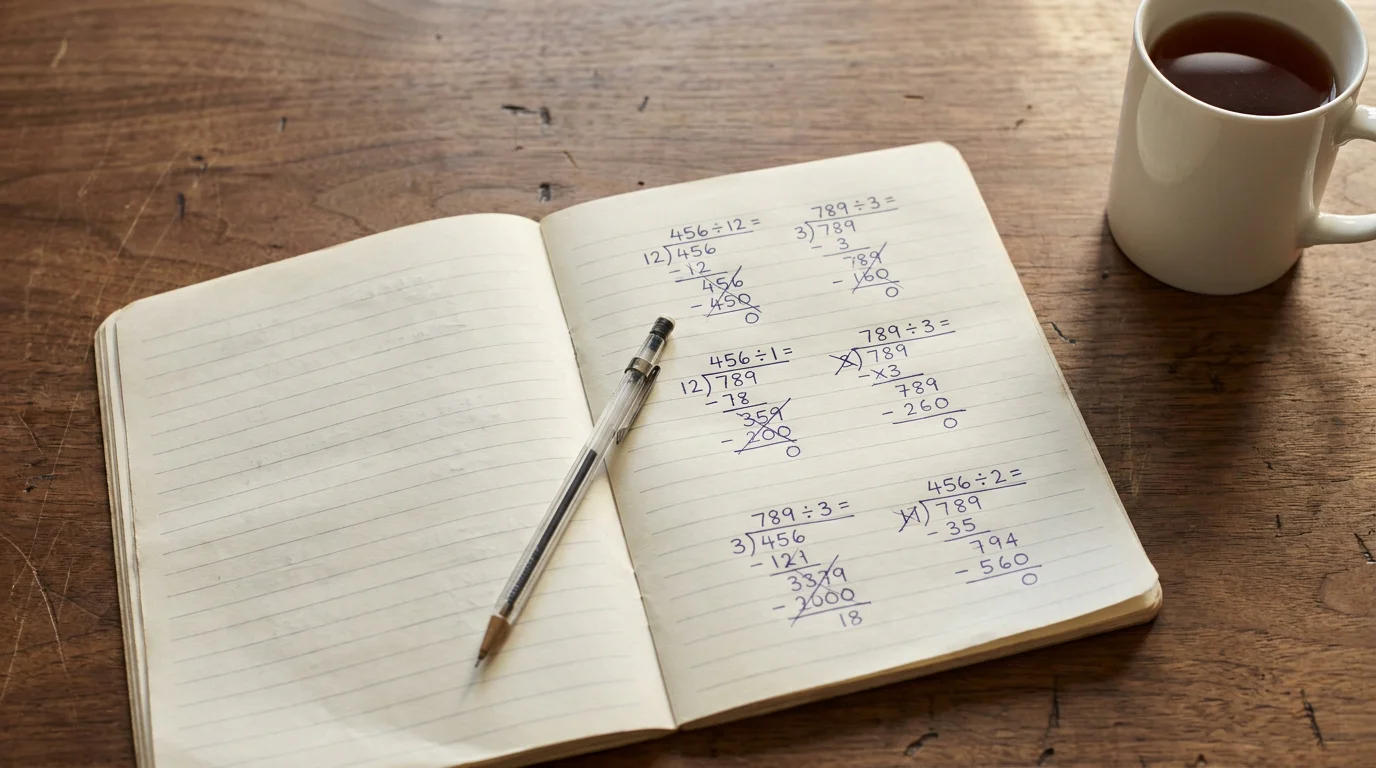 456÷12=
12)456
-12
456
-450
0
789÷3=
3)789
-3
789
-160
0
456÷1=
12)789
-78
359
-200
0
789÷3=
)789
-x3
789
-260
0
789÷3=
3)456
-121
3379
-2000
18
456÷2=
)789
-35
794
-560
0